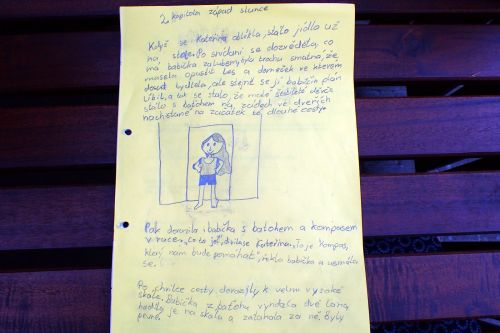 2. kapitola západ slunce
Když se Kateřina oblékla, stálo jídlo už
na stole. Po snídani se dozvěděla, co
má babička za lubem, byla trochu smutná, že
musela opustit les a domeček ve kterém
dosud bydlela, ale stejně se jí babiččin plán
líbil, a tak se stalo, že malé děvče
stálo s batohem na zádech ve dveřích
nachstané na začátek se dlouhé cesty.
Pak dorazila i babička s batohem a kompasem
v ruce. „Co to je?" divila se Kateřina. „To je kompas,
který nám bude pomáhat" řekla babička a usmála
se.
Po chvilce cesty dorazily k velmi vysoké
skále. Babička z batohu vyndala dvě lana,
hodila je na skálu a zatáhala za ně. Byly
pevné.